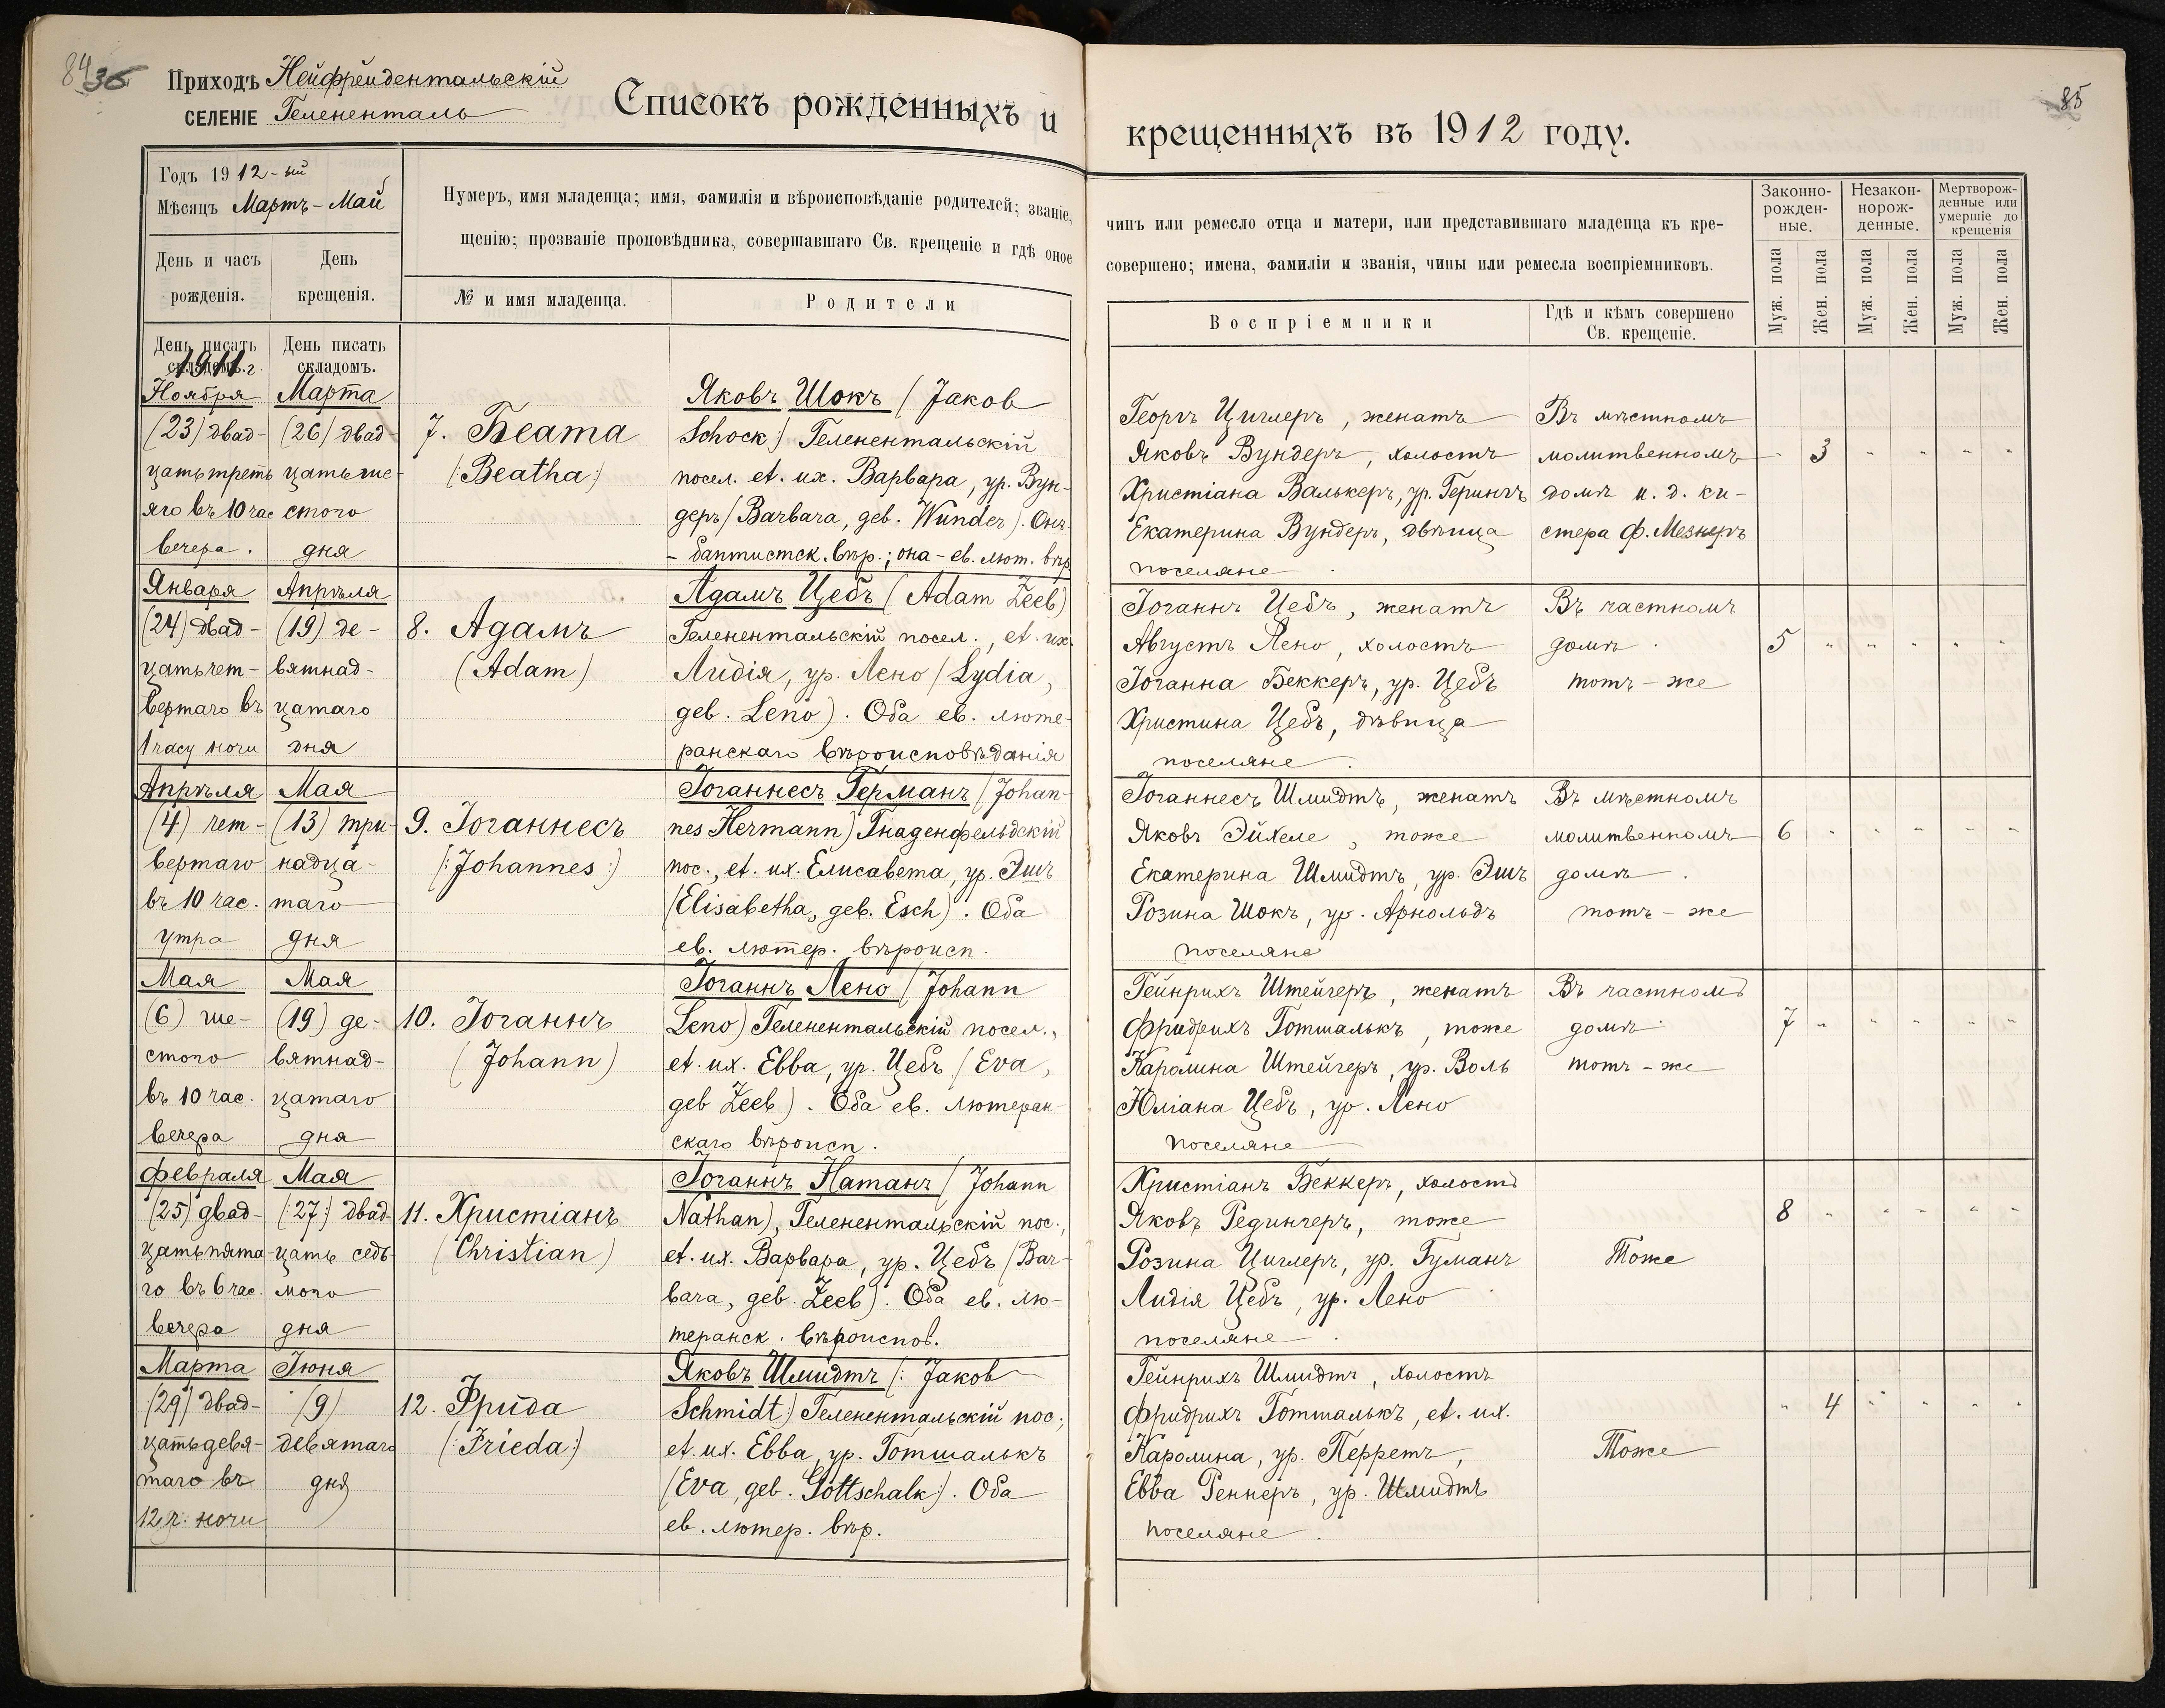 84
36
Приходъ Нейфрейдентальскій
СЕЛЕНІЕ Гелененталь
Списокъ рожденныхъ и
Годъ 1912-ый
Мѣсяцъ Мартъ - Май
Нумеръ, имя младенца; имя, фамилія и вѣроисповѣданіе родителей; званіе,
щенію; прозваніе проповѣдника, совершавшаго Св. крещеніе и гдѣ оное
День и часъ рожденія.
День крещенія.
№ и имя младенца.
Родители
День писать складомъ.
День писать складомъ.
1911 г.
Ноября
(23) двад-
цатьтреть
яго въ 10 час
вечера.
Марта
(26) двад-
цатьше-
стого
дня
7. Беата
(:Beatha:)
Яковъ Шокъ (Jakob
Schock:) Геленентальскій
посел. et. ux. Варвара, ур. Вун-
деръ (Barbara, geb. Wunder). Онъ
- баптистск. вѣр.; она - ев. лют. вѣр.
Января
(24) двад-
цатьчет-
вертаго въ
1 часу ночи
Апрѣля
(19) де-
вятнад-
цатаго
дня
8. Адамъ
(Adam)
Адамъ Цебъ (Adam Zeeb)
Геленентальскій посел., et. ux.
Лидія, ур. Лено (Lydia,
geb. Leno). Оба ев. люте-
ранскаго вѣроисповѣданія
Апрѣля
(4) чет-
вертаго
въ 10 час.
утра
Мая
(13) три-
надца-
таго
дня
9. Іоганнесъ
(:Johannes:)
Іоганнесъ Германъ (Johan-
nes Hermann) Гнаденфельдскій
пос., et. ux. Елисавета, ур. Эшъ
(Elisabetha, geb. Esch). Оба
ев. лютер. вѣроисп.
Мая
(6) ше-
стого
въ 10 час.
вечера
Мая
(19) де-
вятнад-
цатаго
дня
10. Іоганнъ
(Johann)
Іоганнъ Лено (Johann
Leno) Геленентальскій посел.,
et. ux. Евва, ур. Цебъ (Eva,
geb Zeeb). Оба ев. лютеран-
скаго вѣроисп.
Февраля
(25) двад-
цатьпята-
го въ 6 час.
вечера
Мая
(:27:) двад-
цать седь-
мого
дня
11. Христіанъ
(Christian)
Іоганнъ Натанъ (Johann
Nathan), Геленентальскій пос.,
et. ux. Варвара, ур. Цебъ (Bar-
bara, geb. Zeeb). Оба ев. лю-
теранск. вѣроиспов.
Марта
(29) двад-
цатьдевя-
таго въ
12 ч. ночи
Іюня
(9)
девятаго
дня
12. Фрида
(:Frieda:)
Яковъ Шмидтъ (: Jakob
Schmidt:) Геленентальскій пос.,
et. ux. Евва, ур. Готшалькъ
(Eva, geb. Gottschalk:). Оба
ев. лютер. вѣр.
85
крещенныхъ въ 1912 году.
чинъ или ремесло отца и матери, или представившаго младенца къ кре-
совершено; имена, фамиліи и званія, чины или ремесла воспріемниковъ.
Воспріемники
Гдѣ и кѣмъ совершено Св. крещеніе.
Законно-рожден-ные.
Незакон-норож-денные.
Мертворож-денные или умершіе до крещенія
Муж. пола
Жен. пола
Муж. пола
Жен. пола
Муж. пола
Жен. пола
Георгъ Циглеръ, женатъ
Яковъ Вундеръ, холостъ
Христіана Валькеръ, ур. Герингъ
Екатерина Вундеръ, дѣвица
поселяне.
Въ мѣстномъ
молитвенномъ
домѣ и. д. ки-
стера Ф. Мезнеръ
" 3 " " " "
Іоганнъ Цебъ, женатъ
Августъ Лено, холостъ
Іоганна Беккеръ, ур. Цебъ
Христина Цебъ, дѣвица
поселяне.
Въ частномъ
домѣ.
тотъ-же
5 " " " " "
Іоганнесъ Шмидтъ, женатъ
Яковъ Эйхеле, тоже
Екатерина Шмидтъ, ур. Эшъ
Розина Шокъ, ур. Арнольдъ
поселяне
Въ мѣстномъ
молитвенномъ
домѣ.
тотъ-же
6 " " " " "
Гейнрихъ Штейгеръ, женатъ
Фридрихъ Готшалькъ, тоже
Каролина Штейгеръ, ур. Воль
Юліана Цебъ, ур. Лено
поселяне
Въ частномъ
домѣ
тотъ-же
7 " " " " "
Христіанъ Беккеръ, холостъ
Яковъ Редингеръ, тоже
Розина Циглеръ, ур. Гуманъ
Лидія Цебъ, ур. Лено
поселяне.
Тоже
8 " " " " "
Гейнрихъ Шмидтъ, холостъ
Фридрихъ Готшалькъ, et. ux.
Каролина, ур. Перретъ,
Евва Реннеръ, ур. Шмидтъ
поселяне.
Тоже
" 4 " " " "